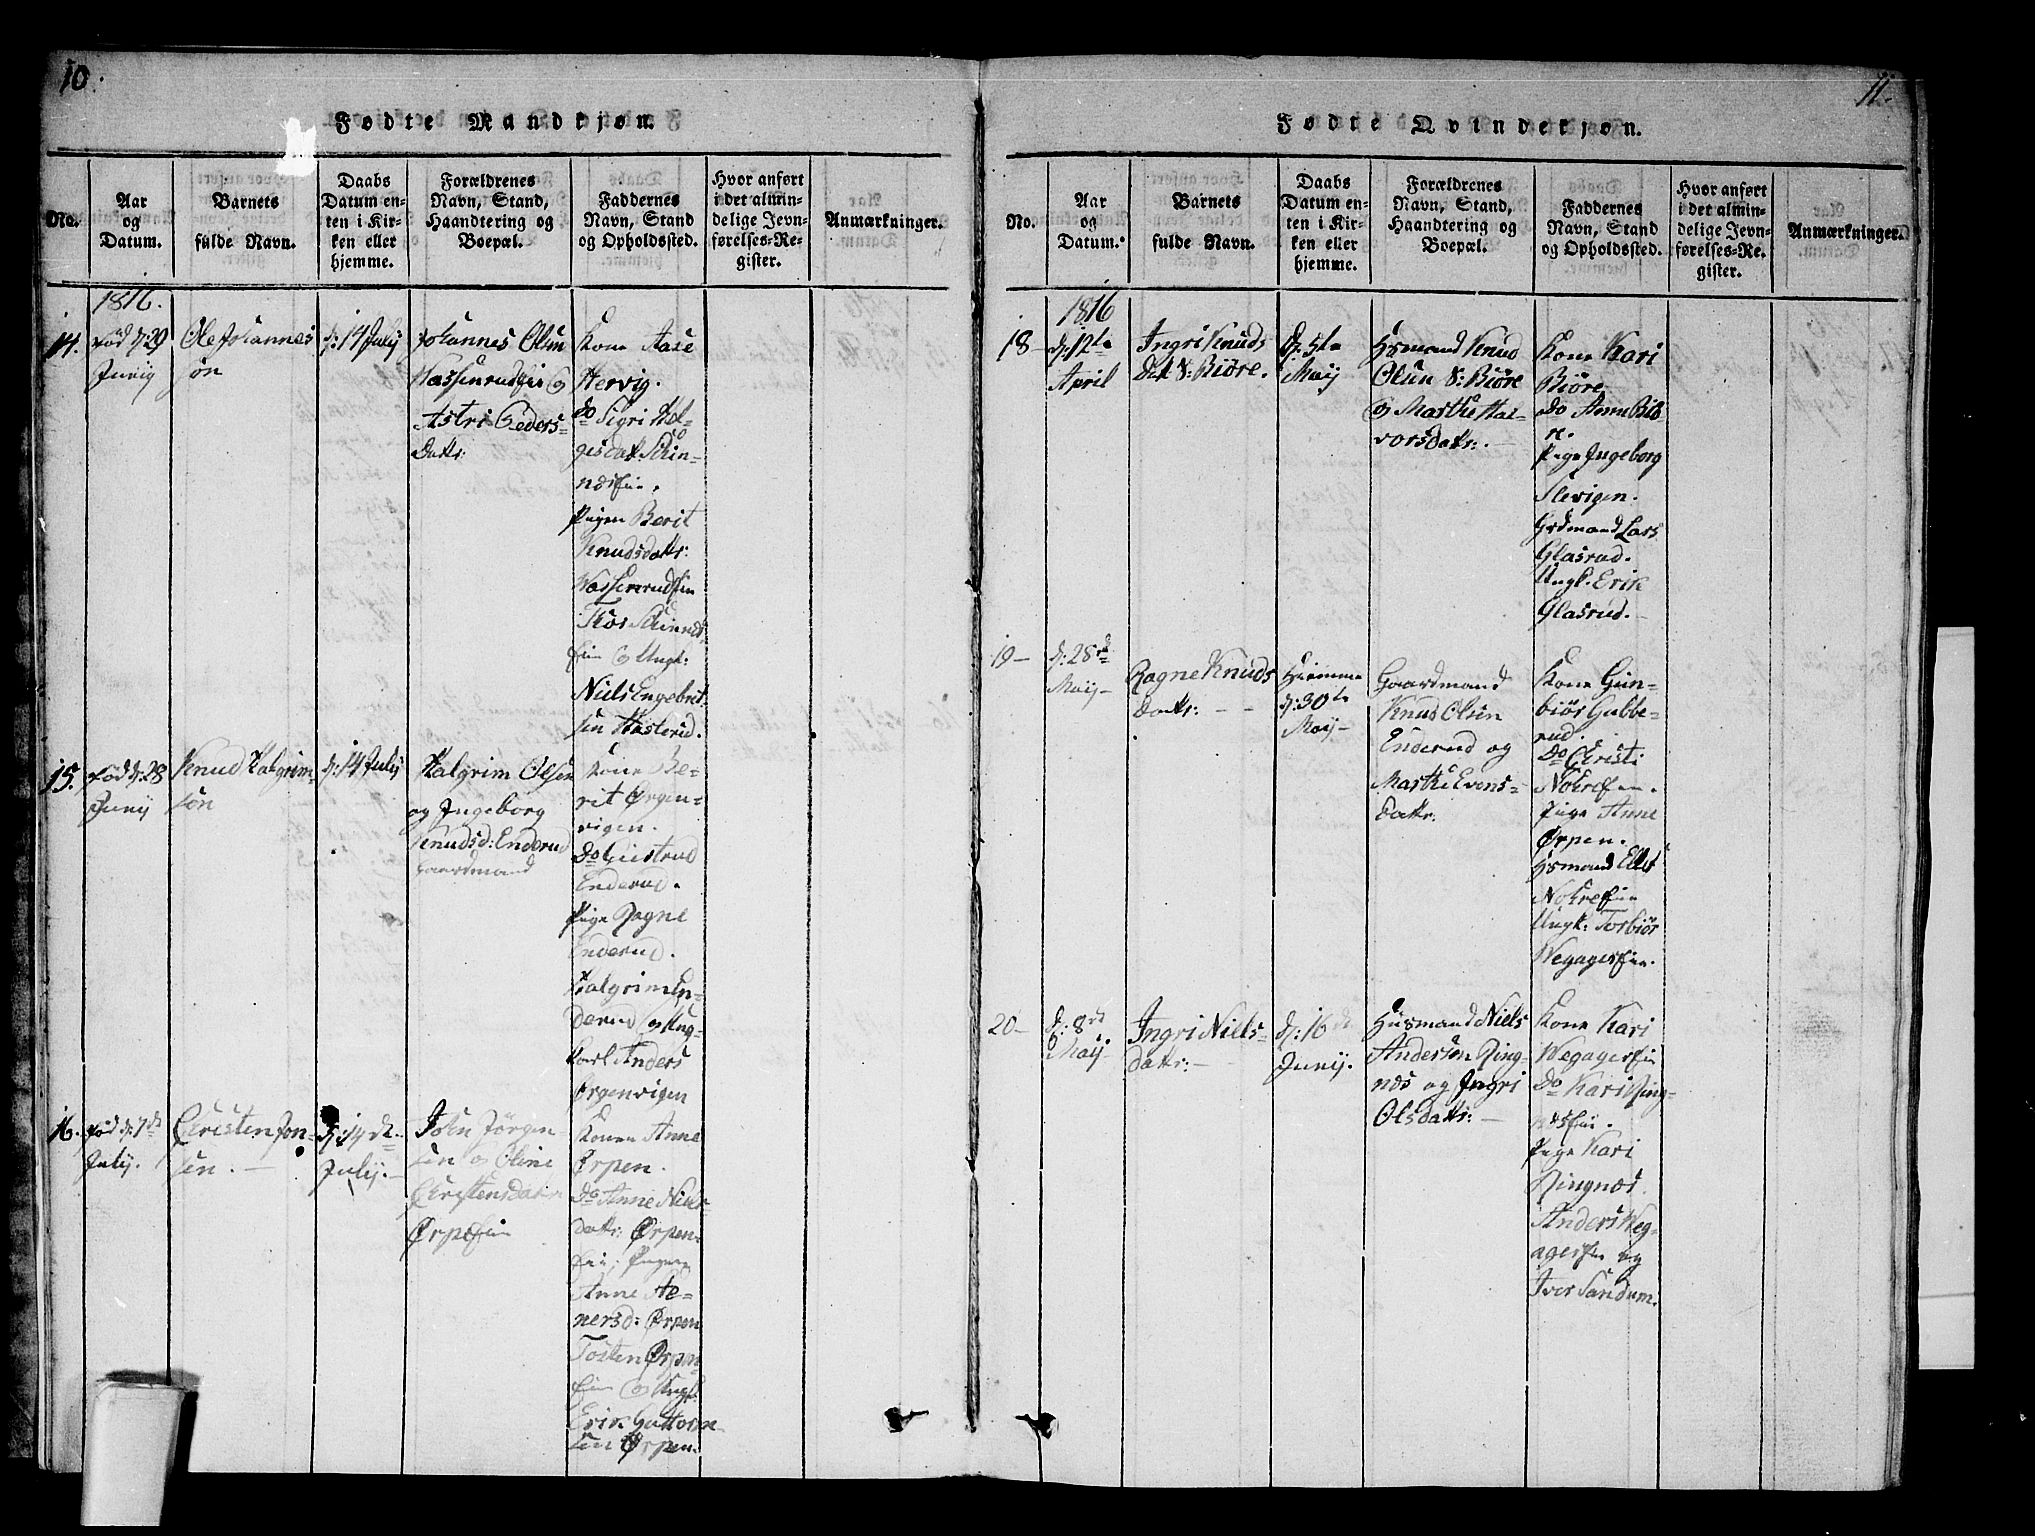 10.
Fødte Mandkjøn.
No.
Aar
og
Datum.
Barnets
fulde Navn.
Daabs
Datum en-
ten i Kir-
ken eller
hjemme.
Forældrenes
Navn, Stand,
Haandtering og
Boepæl.
Faddernes
Navn, Stand
og Opholdssted.
Hvor anført
i det almin-
delige Jevn-
førelses-Re-
gister.
Anmærkninger.
1816.
14.
fød d: 29
Junij
Ole Johannes
søn
d: 14 Julij
Johannes Olsen
og
Astri Peders-
Dattr:
Kone Aase
Hervig.
do Sigri Hel-
gisdatr
Pigen Berit
Knudsdattr:
Thor
og Ungk:
Niels Engebret-
sen Hasterud.
15.
fød d: 28
Junij
Knud Halgrim-
søn
d: 14 Julij
Halgrim Olsen
og Ingeborg
Knudsd: Enderud
Gaardmand
Kone Be-
rit Ørgen-
vigen.
Do Giertrud
Enderud.
Pige Ragne
Enderud.
Halgrim En-
derud og Ung-
karl Anders
Ørgenvigen
16.
fød d: 7de
Julij.
Christen Jon-
sen. —
d: 14de
Julij. —
John Jørgen
sen og Oline
Christensdatr
Ørpefiin
Konen Anne
Ørpen.
Do Anne Niels
dattr: Ørpen-
fiin, Pigen
Anne
nersd: Ørpen
Tosten Ørpen-
fiin og Ungk.
Erik Guttorm
sen Ørpen.
11.
Fødte Qvindekjøn.
No.
Aar
og
Datum.
Barnets
fulde Navn.
Daabs
Datum en-
ten i Kir-
ken eller
hjemme.
Forældrenes
Navn, Stand,
Haandtering og
Boepæl.
Faddernes
Navn, Stand
og Opholdssted.
Hvor anført
i det almin-
delige Jevn-
førelses-Re-
gister.
Anmærkninger.
1816
18 —
d: 12te
April
Ingri Knuds
Dat. S: Biøre.
D: 5te
Maij
Hsmand Knud
Olsen S: Biøre
og Marthe Hal-
vorsdattr: —
Kone Kari
Biøre
do Anne Biö-
re.
Pige Ingeborg
Slevigen.
Grdmand Lars
Glasrud.
Ungk. Erik
Glasrud. —
19 —
d: 28de
Maij —
Ragne Knuds
dattr: — —
Hiemme
d: 30te
Maij —
Gaardmand
Knud Olsen
Enderud og
Marthe Evens-
dattr:
Kone Gun-
biør Gubbe-
rud.
Do Christi
Nokrefiin.
Pige Anne
Ørpen.
Hsmand Ellef
Nokrefiin
Ungk: Torbiør
Wegagerfiin.
20 —
d: 8de
Maij
Ingri Niels-
datr: —
d: 16de
Junij.
Huusmand Niels
Andersen Ring-
næs og Ingri
Olsdattr: —
Kone Kari
Wegagerfiin
Do Kari Ring-
næsfiin.
Pige Kari
Ringnæs.
Anders Weg-
agerfiin og
Iver Sandum.